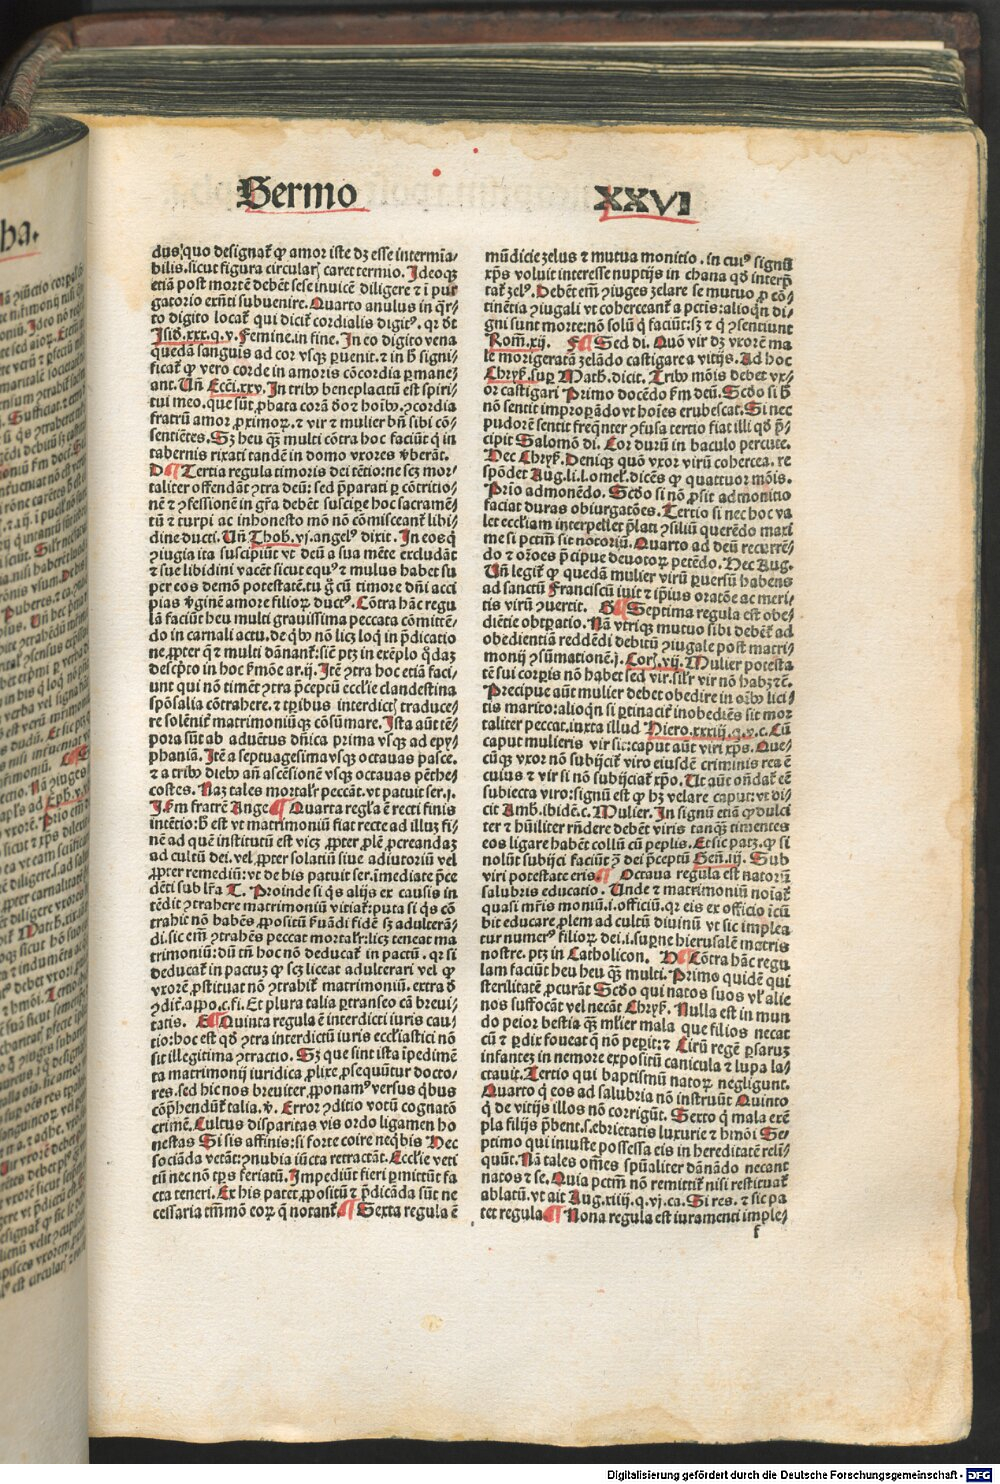 Sermo XXVI
dus/quo designat᷑ ꝙ amor iste dꝫ esse intermīa-
bilis.sicut figura circularꝭ caret termio. Ideoqꝫ
etiā post mortē debēt sese inuicē diligere ⁊ ī pur
gatorio exn̄ti subuenire. Quarto anulus in q̄r-
to digito locat᷑ qui dicit᷑ cordialis digitꝰ. qr dt
Isid.xxx.q.v. Femine.in fine. In eo digito vena
quedā sanguis ad cor vsqꝫ ꝑuenit. ⁊ in h̄ signi-
ficat᷑ ꝙ vero corde in amoris cōcordia ꝑmane-
ant. Vn̄ Ecci.xxv. In tribꝰ beneplacitū est spiri-
tui meo. que sūt ꝓbata corā deo ⁊ hoībꝰ. ↄcordia
fratrū amor ꝓximoꝝ. ⁊ vir ⁊ mulier bn̄ sibi cō-
sentiētes. Sꝫ heu qꝫ multi cōtra hoc faciūt q̄ in
tabernis rixati tandē in domo vxores v̄berāt.
D ¶ Tertia regula timoris dei tētio:ne scꝫ mor-
taliter offendāt ↄtra deū: sed p̄parati ꝑ cōtritio-
nē ⁊ ↄfessionē in gr̄a debēt suscipe hoc sacramē-
tū ⁊ turpi ac inhonesto mō nō cōmisceant᷑ libi-
dine ducti. Vn̄ Thob.vj.angelꝰ dixit. In eos q̄
ↄiugia ita suscipiūt vt deū a sua mēte excludāt
⁊ sue libidini vacēt sicut equꝰ ⁊ mulus habet su
per eos demō potestatē.tu g̊ cū timore dn̄i acci
pias v̄ginē amore filioꝝ ductꝰ. Cōtra hāc regu
lā faciūt heu multi grauissima peccata cōmittē-
do in carnali actu. de qbꝰ nō licꝫ loq̄ in p̄dicatio
ne.ꝓpter q̄ ⁊ multi dānant᷑: sicut ptꝫ in exēplo q̄daꝫ
descp̄to in hoc s̄mōe ar.ij. Itē ↄtra hoc etiā faci-
unt qui nō timēt ↄtra p̄ceptū eccl̄ie clandestina
spōsalia cōtrahere. ⁊ tp̄ribus interdictꝭ traduce-
re solēnit᷑ matrimoniūqꝫ cōsūmare. Ista aūt tē-
pora sūt ab aduētus dn̄ica prima vsqꝫ ad epy-
phaniā. Itē a septuagesima vsqꝫ octauas pasce.
⁊ a tribꝰ diebꝰ an̄ ascēsionē vsqꝫ octauas pēthe-
costes. Naꝫ tales mortalr̄ peccāt. vt patuit ser.j.
I.s̄m fratrē Ange ¶ Quarta regl̄a ē recti finis
intētio:h̄ est vt matrimoniū fiat recte ad illuꝫ fi-
nē ad quē institutū est vicꝫ ꝓpter ꝓlē ꝓcreandaꝫ
ad cultū dei. vel ꝓpter solatiū siue adiutoriū vel
ꝓpter remediū: vt de his patuit ser.īmediate p̄ce
dēti sub lr̄a T. Proinde si qs alijs ex causis in
tēdit ↄtrahere matrimoniū vitiat᷑: puta si qs cō
trahit nō habēs ꝓpositū s̄uādi fidē sꝫ adulterā-
di.sic em̄ ↄtrahēs peccat mortalr̄: licꝫ teneat ma
trimoniū: dū tn̄ hoc nō deducat᷑ in pactū. qr si
deducat᷑ in pactuꝫ ꝙ scꝫ liceat adulterari vel ꝙ
vxorē ꝓstituat nō ↄtrahit᷑ matrimoniū.extra d̄
ↄdit̄.appo.c.fi. Et plura talia ꝑtranseo cā breui-
tatis. E ¶ Quinta regula ē interdicti iuris cau-
tio:hoc est qd̄ ↄtra interdictū iuris eccl̄iastici nō
sit illegitima ↄtractio. Sꝫ que sint ista īpedimē
ta matrimonij iuridica ꝓlixe ꝓsequūtur docto-
res.sed hic nos breuiter ꝓponamꝰ versus qbus
cōp̄hendūt᷑ talia.v̄. Error ↄditio votū cognatō
crimē. Cultus disparitas vis ordo ligamen ho
nestas Si sis affinis: si forte coire neqbis Hec
sociāda vetāt: ↄnubia iūcta retractāt. Eccl̄ie veti
tū nec nō tp̄s feriatū. Impediūt fieri ꝑmittūt fa
cta teneri. Ex his patet ꝓpositū ⁊ p̄dicāda sūt ne
cessaria tm̄mō eoꝝ q̄ notant᷑. ¶ Sexta regula ē
mūdicie zelus ⁊ mutua monitio. in cuiꝰ signū
xp̄s voluit interesse nuptijs in chana qd̄ interp̄
tat᷑ zelꝰ. Debēt em̄ ↄiuges zelare se mutuo ꝓ cō-
tinētia ↄiugali vt coherceant᷑ a pctīs: alioqn di-
gni sunt morte:nō solū q̄ faciūt: sꝫ ⁊ q̄ ↄsentiunt
Rom.xij. F ¶ Sed di. Quō vir dꝫ vxorē ma
le morigeratā zelādo castigare a vitijs. Ad hoc
Chryſ.sup Math.dicit. Tribꝰ mōis debet vx-
or castigari Primo docēdo s̄m deū. Scd̄o si h̄
nō sentit improꝑādo vt hoīes erubescat. Si nec
pudorē sentit freq̄nter ↄfusa tertio fiat illi qd̄ p̄-
cipit Salomō di. Cor durū in baculo percute.
Hec Chryſ. Deniqꝫ quō vxor virū cohercea. re
spōdet Aug.li.l.omel. dicēs ꝙ quattuor mōis.
Prīo admonēdo. Scd̄o si nō ꝓsit admonitio
faciat duras obiurgatōes. Tertio si nec hoc va
let eccl̄iam interpellet p̄lati ↄsiliū querēdo maxi
me si pctm̄ sit notoriū. Quarto ad deū recurrē-
do ⁊ or̄oes p̄cipue deuotoꝝ petēdo. Hec Aug.
Vn̄ legit᷑ ꝙ quedā mulier virū ꝑuersū habens
ad sanctū Franciscū iuit ⁊ ip̄ius oratōe ac meri-
tis virū ↄuertit. G ¶ Septima regula est obe-
diētie obtꝑatio. Nā vtriqꝫ mutuo sibi debēt᷑ ad
obedientiā reddēdi debitū ↄiugale post matri-
monij ↄsūmationē.j. Corꝭ.vij. Mulier potesta
tē sui corpis nō habet sed vir.sil̄r vir nō habꝫ ⁊c̄.
Precipue aūt mulier debet obedire in oībꝰ lici-
tis marito: alioqn si ꝑtinacit᷑ inobediēs sit mor
taliter peccat.iuxta illud Hiero.xxxiij.q.v.c. Cū
caput mulieris vir sit: caput aūt viri xp̄s. Que-
cūqꝫ vxor nō subijcit᷑ viro eiusdē criminis rea ē
cuius ⁊ vir si nō subijciat᷑ xp̄o. Ut aūt on̄dat᷑ eē
subiecta viro:signū est ꝙ hꝫ velare caput: vt di-
cit Amb.ibidē.c. Mulier. In signū etiā ꝙ dulci
ter ⁊ hūiliter rn̄dere debēt viris tanqꝫ timentes
eos ligare habēt collū cū peplis. Et sic patꝫ. ꝙ si
nolūt subijci faciūt ↄ̄ dei p̄ceptū Gen̄.iij. Sub
viri potestate eris ¶ Octaua regula est natorū
salubris educatio. Unde ⁊ matrimoniū noīat᷑
quasi mr̄is moniū.i.officiū.qr eis ex officio īcū
bit educare ꝓlem ad cultū diuinū vt sic implea
tur numerꝰ filioꝝ dei.i.suꝑne hierusalē matris
nostre. ptꝫ in Catholicon. H ¶ Cōtra hāc regu
lam faciūt heu heu qꝫ multi. Primo quidē qui
sterilitatē ꝓcurāt Scd̄o qui natos suos vl̄ alie
nos suffocāt vel necāt Chryſ. Nulla est in mun
do peior bestia qꝫ ml̄ier mala que filios necat
cū ⁊ ꝑdix foueat q̄ nō peꝑit: ⁊ Cirū regē ꝑsaruꝫ
infantez in nemore expositū canicula ⁊ lupa la-
ctauit. Tertio qui baptismū natoꝝ negligunt.
Quarto q̄ eos ad salubria nō instruūt Quinto
q̄ de vitijs illos nō corrigūt. Sexto q̄ mala exē
pla filijs p̄bent.s.ebrietatis luxurie ⁊ hmōi Se-
ptimo qui iniuste possessa eis in hereditatē reli-
quūt. Nā tales om̄es sp̄ualiter dānādo necant
natos ⁊ se. Quia pctm̄ nō remittit᷑ nisi restituat᷑
ablatū. vt ait Aug.xiiij.q.vj.ca. Si res. ⁊ sic pa
tet regula ¶ Nona regula est iuramenti imple-
f
Digitalisierung gefördert durch die Deutsche Forschungsgemeinschaft - DFG